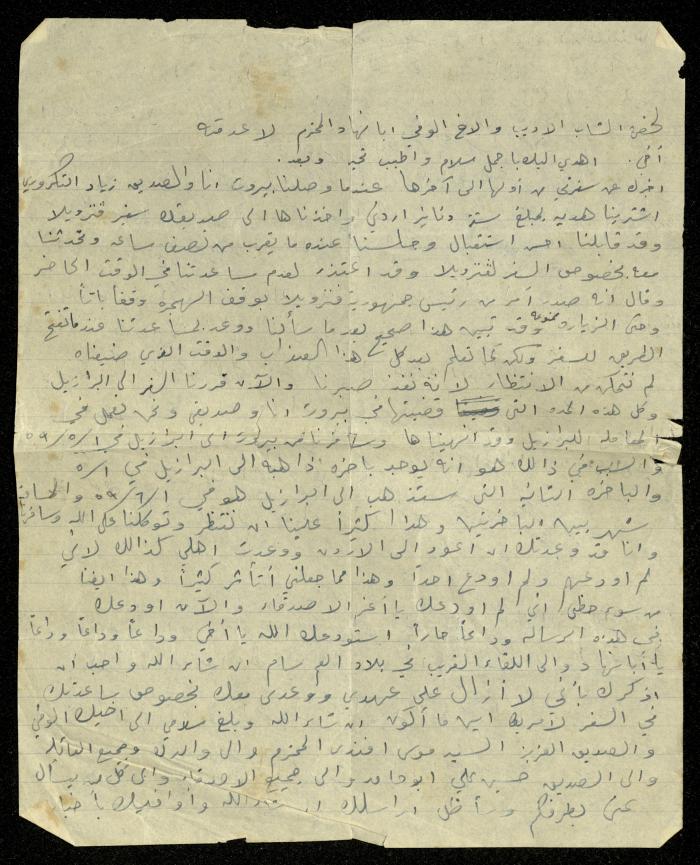 لحضرة الشاب الاديب والاخ الوفي ابا نهاد المحترم لا عدمته
أخي. اهدي اليك باجمل سلام واطيب تحيه وبعد.
اخبرك عن سفرتي من أولها الى آخرها عندما وصلنا بيروت انا والصديق زياد التكروري
اشترينا هديه بمبلغ ستة دنانير اردني واخذناها الى صديقك سفير فنزويلا
وقد قابلنا احسن استقبال وجلسنا عنده ما يقرب من نصف ساعه وتحدثنا
معه بخصوص السفر لفنزويلا وقد اعتذر لعدم مساعدتنا في الوقت الحاضر
وقال انه صدر أمر من رئيس جمهورية فنزويلا بوقف الهجرة وقفاً باتاً
وحتى الزياره ممنوعه وقد تبين هذا صحيح بعد ما سألنا ووعد بمساعدتنا عندما تفتح
الطريق للسفر ولكن كما تعلم بعد كل هذا العذاب والوقت الذي ضيعناه
لم نتمكن من الانتظار لانه نفذ صبرنا والآن قررنا السفر الى البرازيل
وكل هذه المده التي قضيتها في بيروت انا وصديقي ونحن نعمل في
المعامله للبرازيل وقد انهيناها وسافرنا من بيروت الى البرازيل في ٥٩/٥/١
والسبب في ذالك هو انه يوجد باخره ذاهبه الى البرازيل في ٥/١
والباخره الثانيه التي ستذهب الى البرازيل هو في ٥٩/٦/١ والمسافه
شهر بين الباخرتين وهذا كثيراً علينا ان ننتظر وتوكلنا على الله وسافرنا
وانا قد وعدتك ان أعود الى الاردن ووعدت اهلي كذالك لاني
لم اودعهم ولم اودع احداً وهذا مما جعلني أتأثر كثيراً وهذا ايضا
من سوء حظي اني لم اودعك يا أعز الاصدقاء والآن اودعك
في هذه الرساله وداعاً حاراً استودعك الله يا أخي وداعاً وداعاً وداعاً
يا أبا نهاد والى اللقاء القريب في بلاد العم سام ان شاء الله واحب ان
اذكرك بأني لا أزال على عهدي ووعدي معك بخصوص مساعدتك
في السفر لأمريكا اين ما أكون ان شاء الله وبلغ سلامي الى اخيك الوفي
والصديق العزيز السيد موسى افندي المحترم والى والدته وجميع العائله
والى الصديق حسين علي ابو حامد والى جميع الاصدقاء والى كل من يسأل
عني بطرفكم وسأظل اراسلك ان شاء الله وأوافيك بأخبار